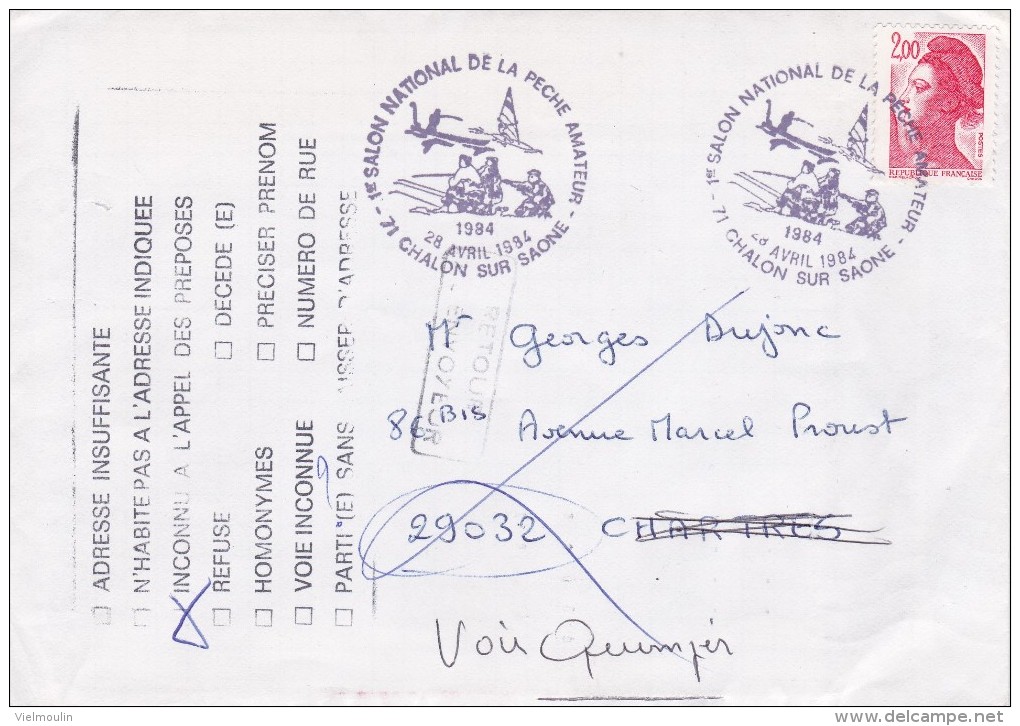 1er SALON NATIONAL DE LA PECHE AMATEUR -
1984
28 AVRIL 1984
71 CHALON SUR SAONE -
1er SALON NATIONAL DE LA PECHE AMATEUR -
1984
28 AVRIL 1984
71 CHALON SUR SAONE -
2,00
POSTES
REPUBLIQUE FRANÇAISE
ADRESSE INSUFFISANTE
N'HABITE PAS A L'ADRESSE INDIQUEE
INCONNU A L'APPEL DES PREPOSES
REFUSE DECEDE (E)
HOMONYMES PRECISER PRENOM
VOIE INCONNUE NUMERO DE RUE
PARTI (E) SANS LAISSER D'ADRESSE
RETOUR
ENVOYEUR
Mr Georges Dujonc
86 BIS Avenue Marcel Proust
29032 CHARTRES
Voir Quimper
Vielmoulin
delcampe.net